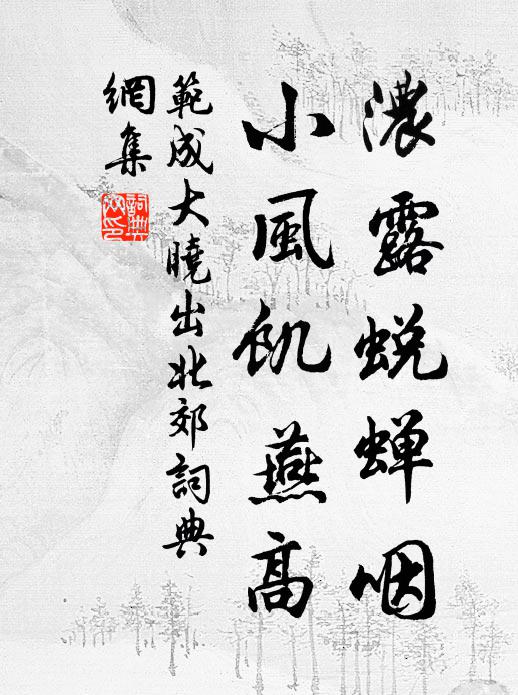 濃露蜕蝉咽
小風飢燕高
範成大曉出北郊詞典
網集
詞典
网印